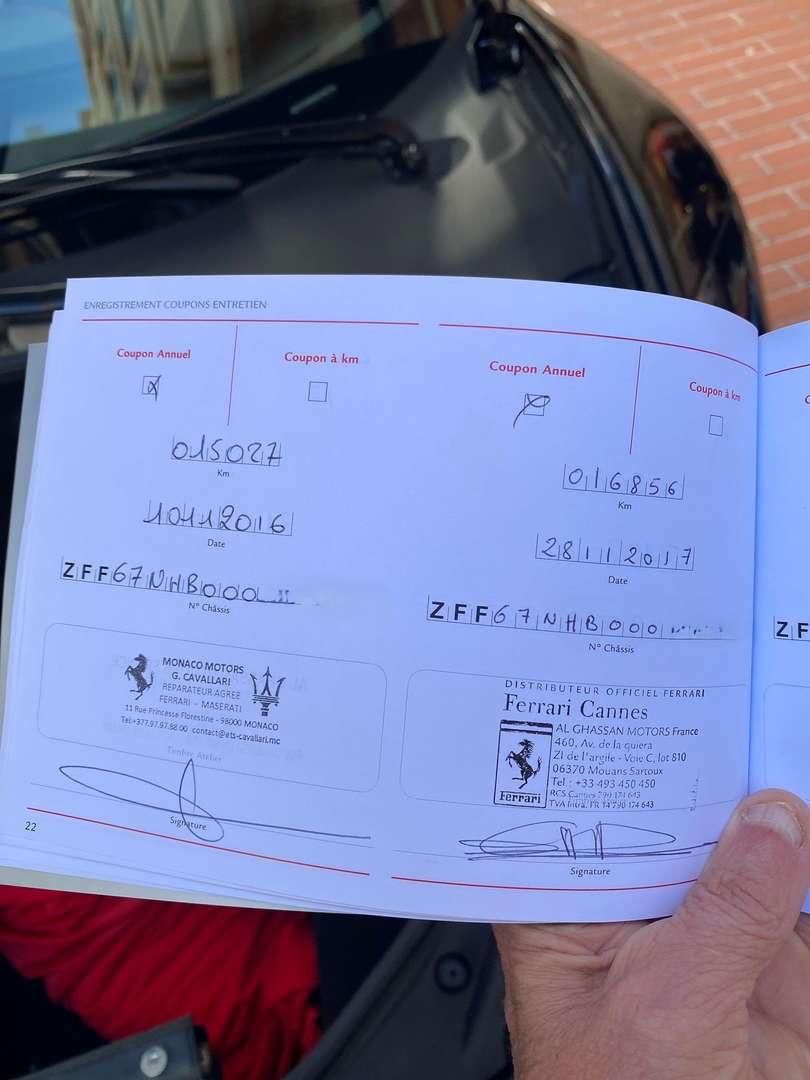 ENREGISTREMENT COUPONS ENTRETIEN
Coupon Annuel
Coupon à km
X
015027
Km
10112016
Date
ZFF67NHB000
N° Châssis
MONACO MOTORS
G. CAVALLARI
REPARATEUR AGREE
FERRARI - MASERATI
11 Rue Princesse Florestine - 98000 MONACO
Tel:+377.97.97.88.00 contact@ets-cavallari.mc
Timbre Atelier
Signature
22
Coupon Annuel
Coupon à km
016856
Km
28112017
Date
ZFF67NHB000
N° Châssis
DISTRIBUTEUR OFFICIEL FERRARI
Ferrari Cannes
Ferrari
AL GHASSAN MOTORS France
460, Av. de la quiera
ZI de l'argile - Voie C, lot 810
06370 Mouans Sartoux
Tel : +33 493 450 450
RCS Cannes 790 174 643
TVA Intra. FR 14 790 174 643
Signature
ZF